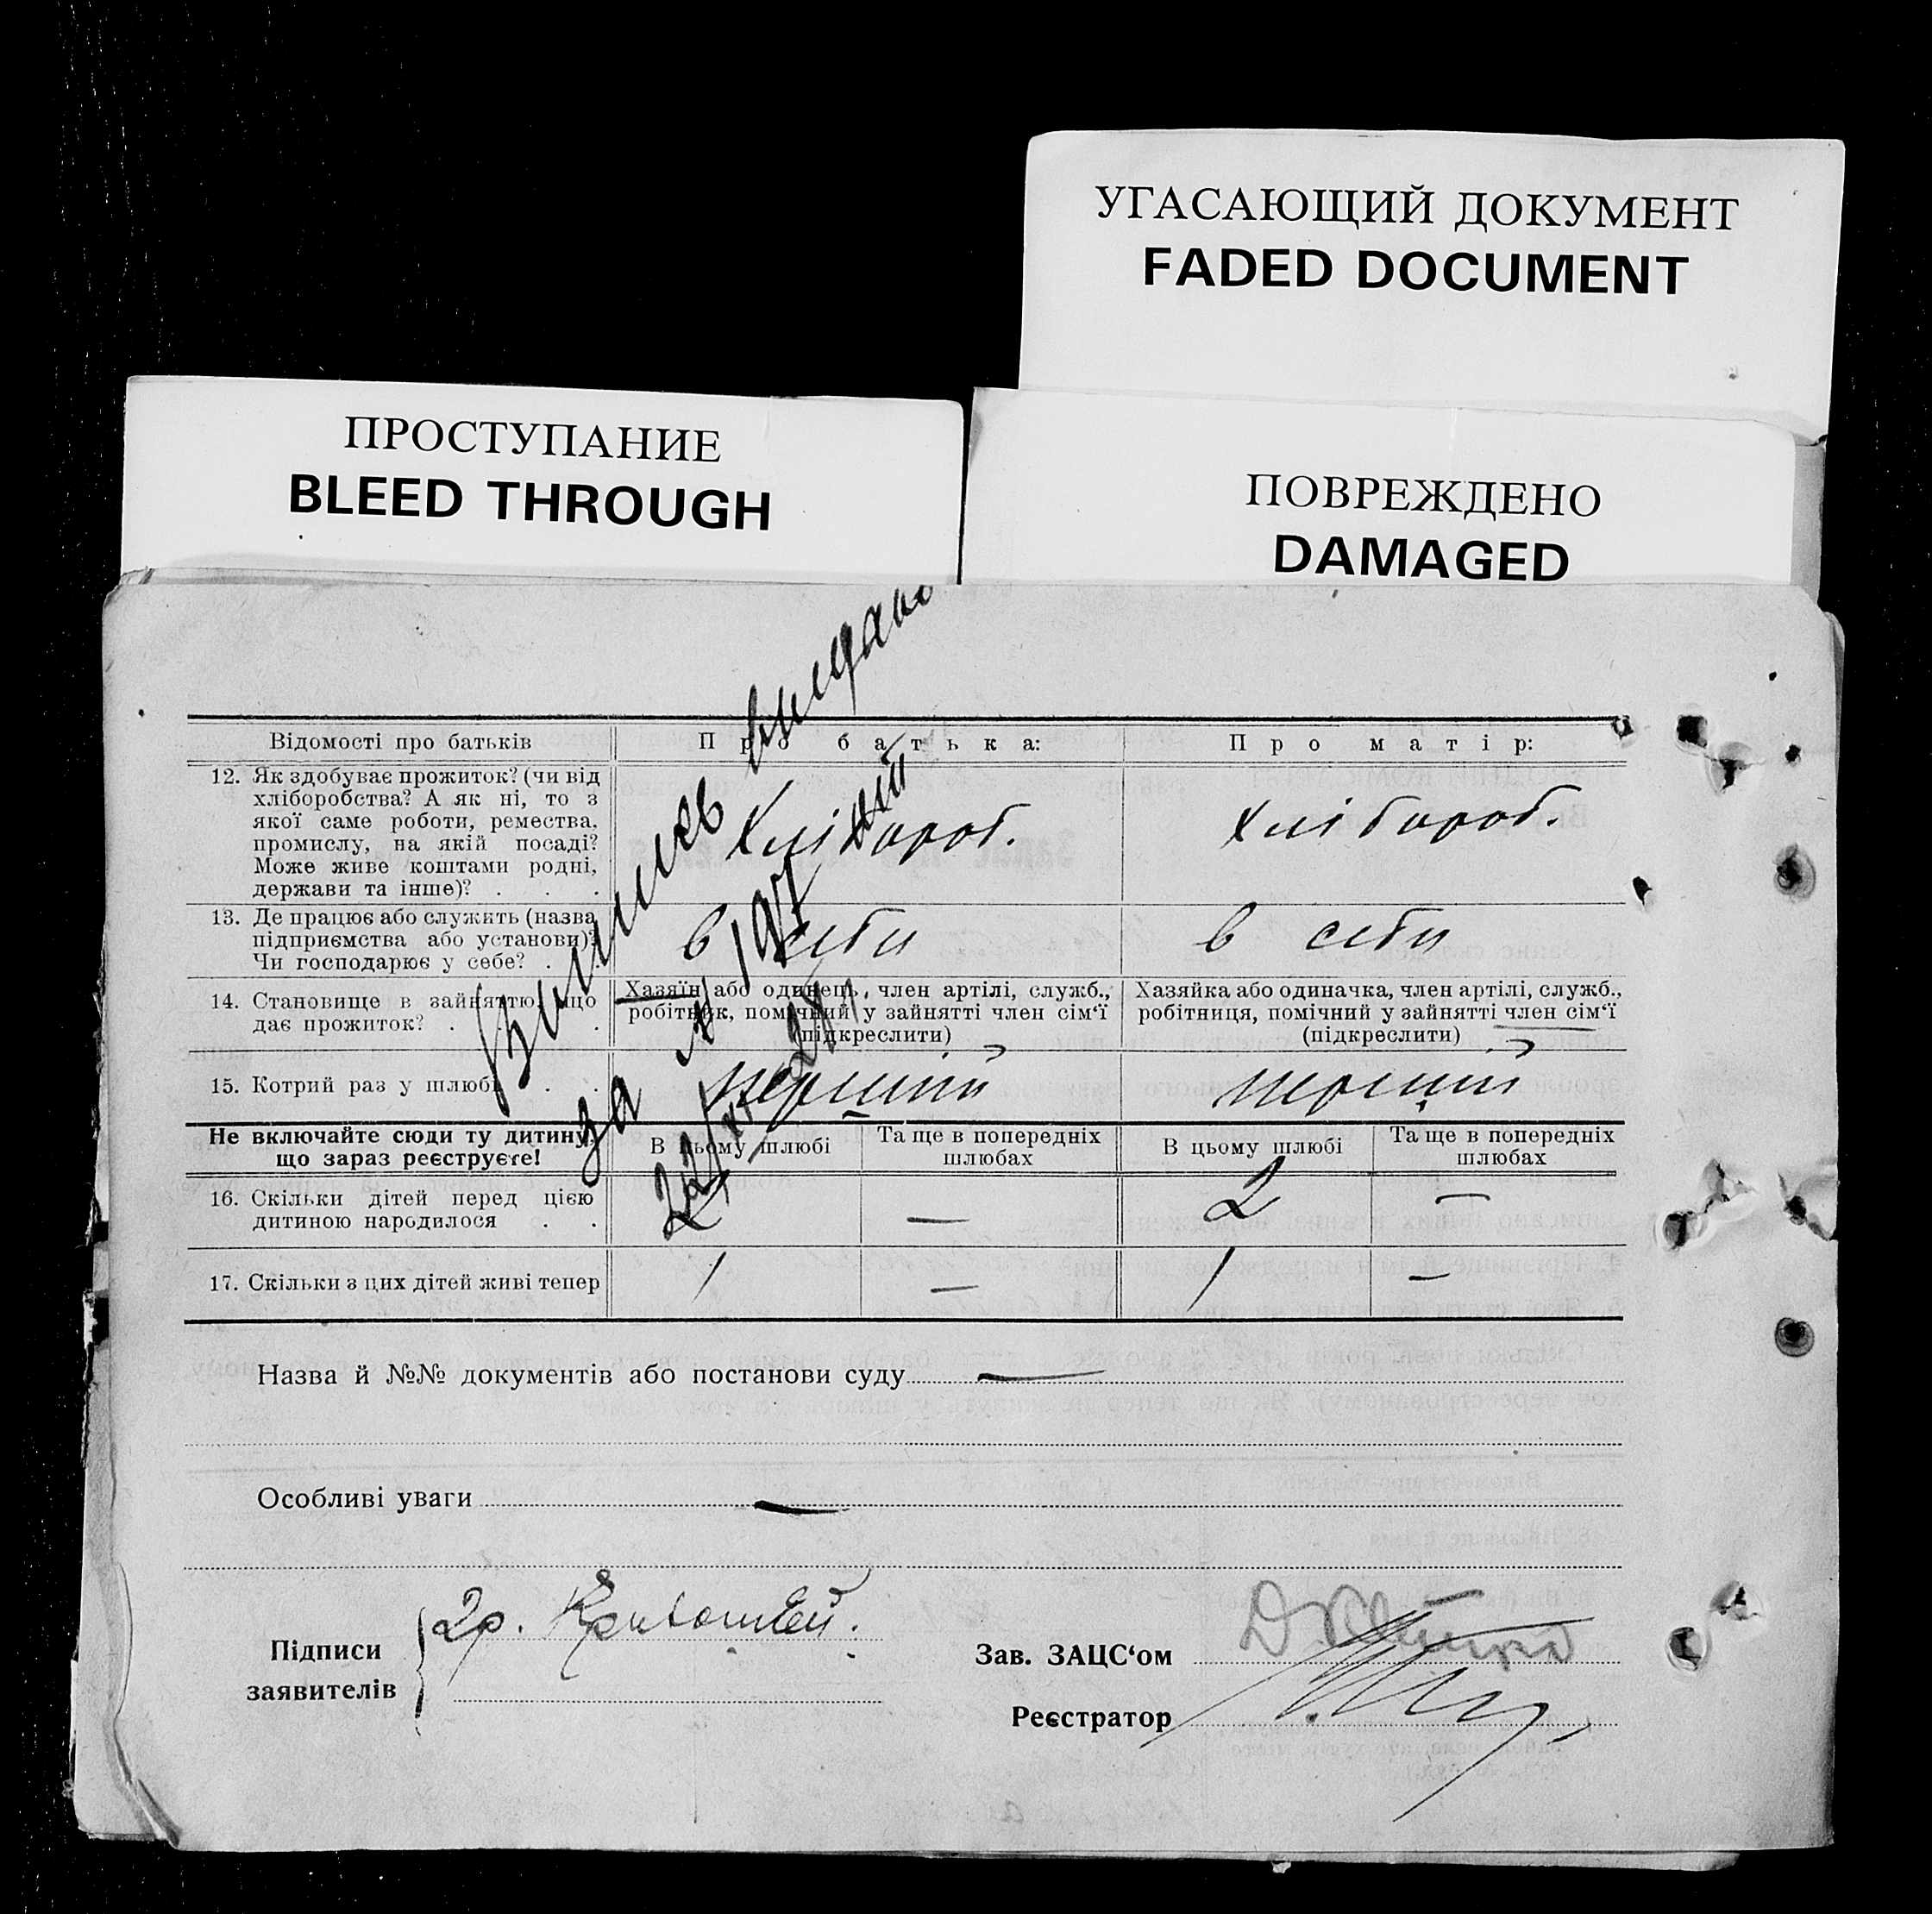 УГАСАЮЩИЙ ДОКУМЕНТ
FADED DOCUMENT
ПРОСТУПАНИЕ
BLEED THROUGH
ПОВРЕЖДЕНО
DAMAGED
Відомості про батьків
Про батька:
Про матір:
12. Як здобуває прожиток? (чи від
хліборобства? А як ні, то з
якої саме роботи, ремества,
промислу, на якій посаді?
Може живе коштами родні,
держави та інше)? . . .
Хлібороб.
Хлібороб.
13. Де працює або служить (назва
підприємства або установи)?
Чи господарює у себе? . .
в себи
в себи
14. Становище в зайняттю, що
дає прожиток? . . .
Хазяїн або одинець, член артілі, служб.,
робітник, помічний у зайнятті член сім‘ї
(підкреслити)
Хазяйка або одиначка, член артілі, служб.,
робітниця, помічний у зайнятті член сім‘ї
(підкреслити)
15. Котрий раз у шлюбі . .
перший
перший
Не включайте сюди ту дитину,
що зараз реєструєте!
В цьому шлюбі
Та ще в попередніх
шлюбах
В цьому шлюбі
Та ще в попередніх
шлюбах
16. Скільки дітей перед цією
дитиною народилося . .
2
—
2
—
17. Скільки з цих дітей живі тепер
1
—
1
—
за № 197
Назва й №№ документів або постанови суду —
Особливі уваги —
Підписи
заявителів
Гр.
Зав. ЗАЦС‘ом
Реєстратор